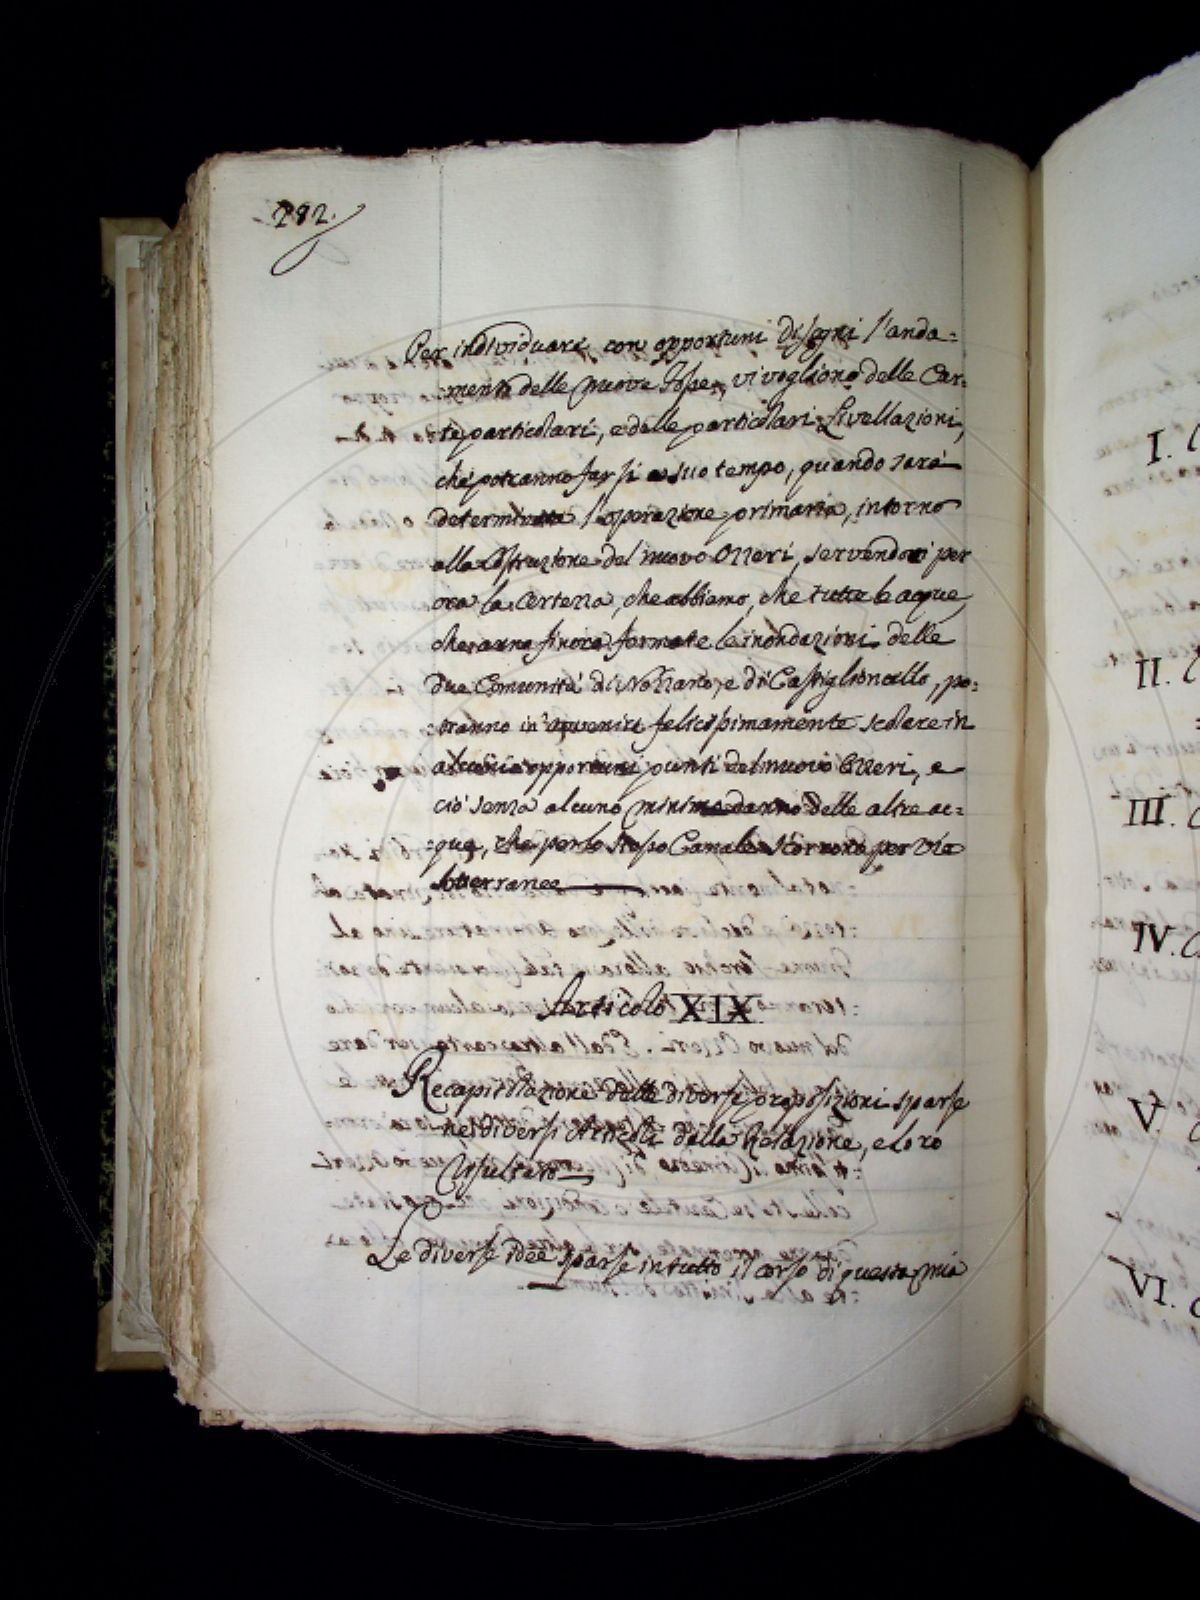 282.
Per individuare con opportuni disegni l'anda=
=mento delle nuove Fosse, vi vogliono delle Car=
=te particolari, e delle particolari Livellazioni,
che potranno farsi a suo tempo, quando sarà
determinata l'operazione primaria, intorno
alla Costruzione del nuovo Ozzeri, servendoci per
ora la Certezza, che abbiamo, che tutte le acque,
che anno finora formate le inondazioni delle
due Comunità di Nozzano, e di Castiglioncello, po=
=tranno in avvenire felicissimamente scolare in
alcuni opportuni punti del nuovo Ozzeri, e
ciò senza alcuno minimo danno delle altre ac=
=que, che per lo stesso Canale scorrono per vie
sotterranee
Articolo XIX.
Recapitolazione delle diverse proposizioni sparse
nei diversi Articoli della Relazione, e loro
risultato
Le diverse idee sparse in tutto il corso di questa mia
I.
II.
III.
IV.
V.
VI.